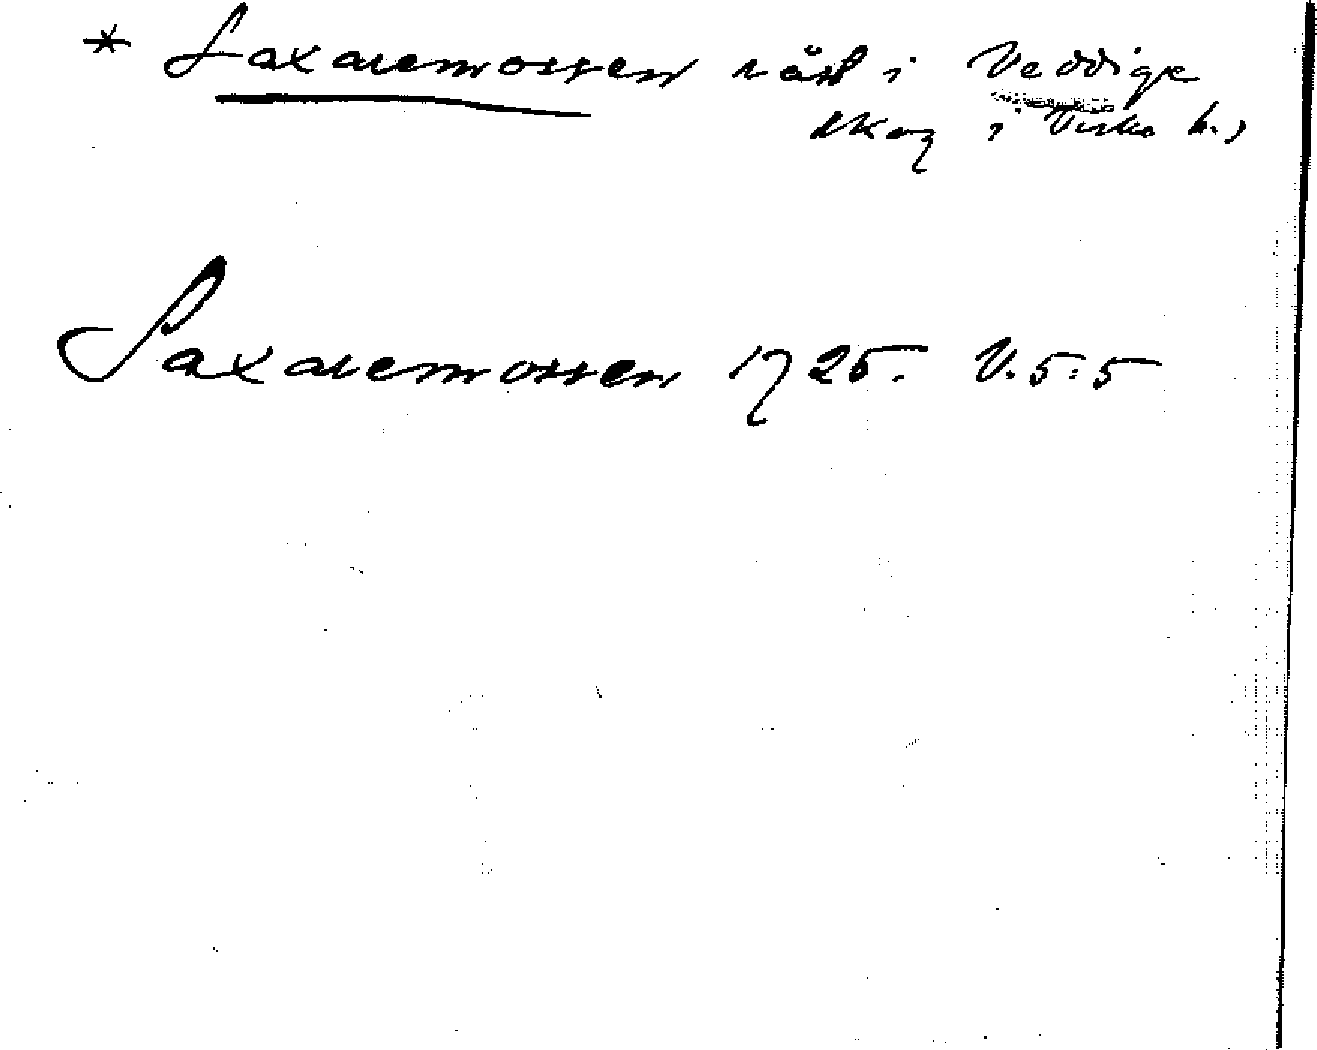 * Saxaremossen väst i Veddige
skog i Viske h.)
Saxaremossen 1725. V. 5:5